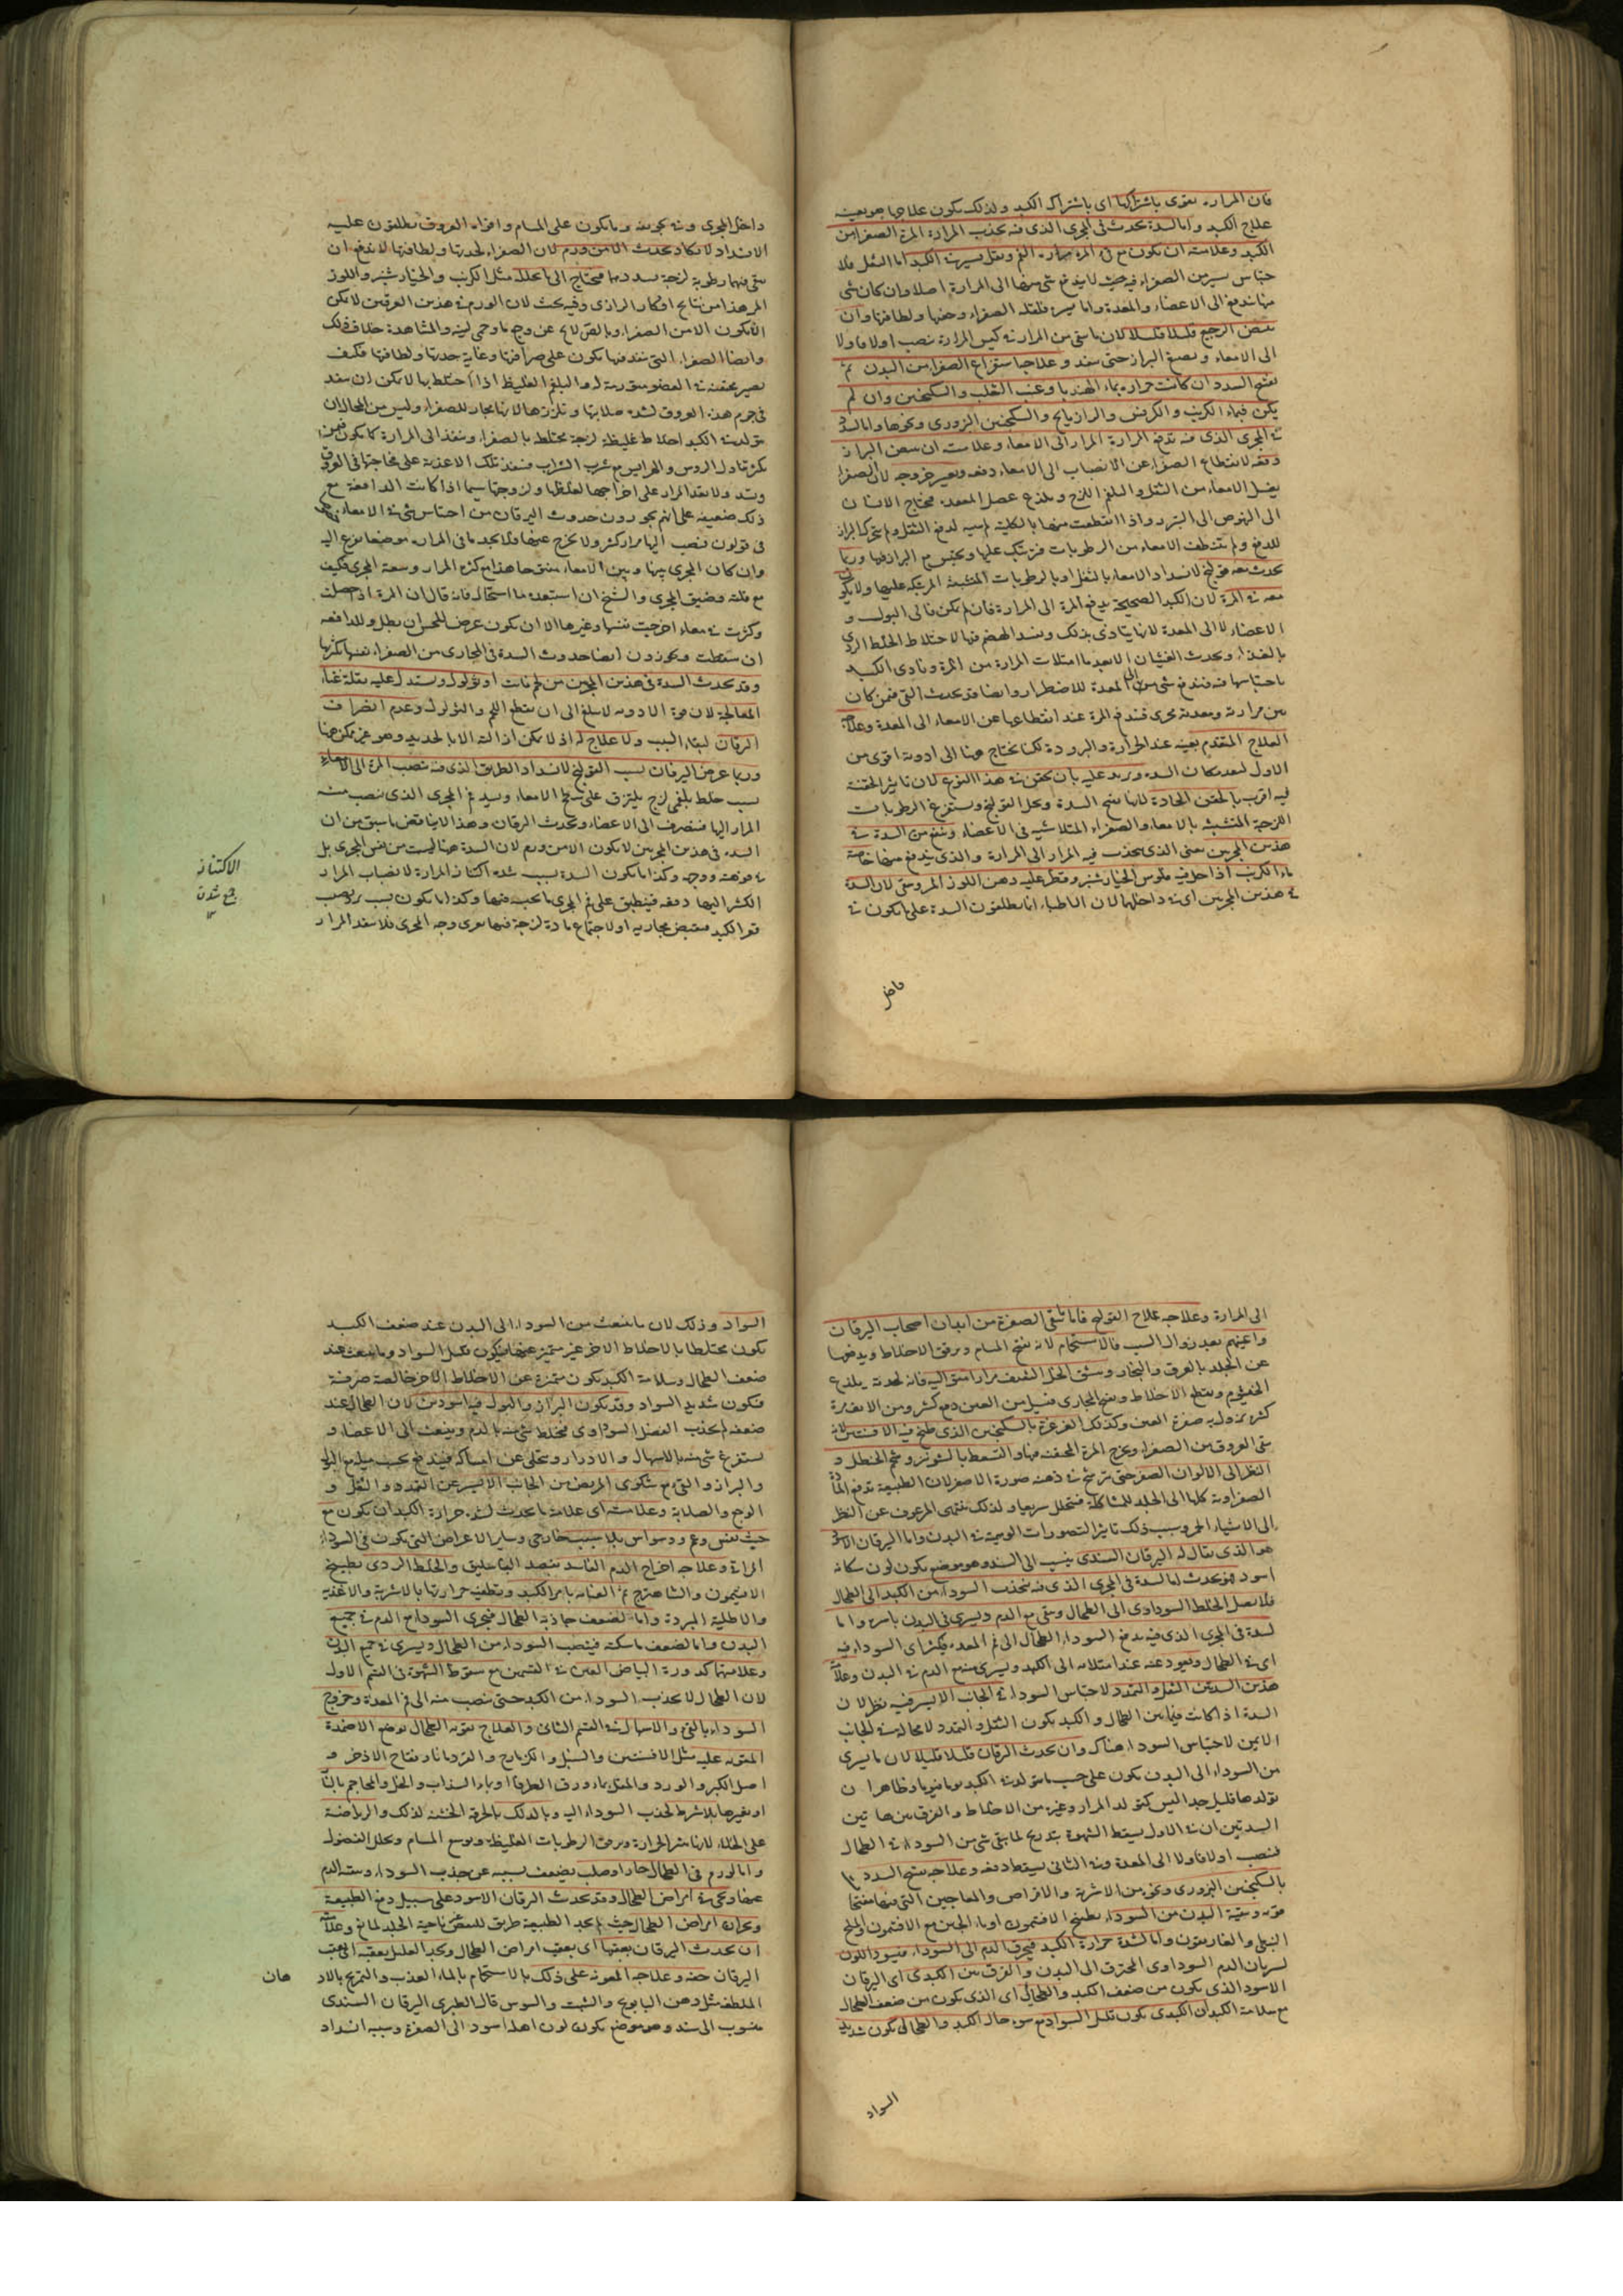 فان المرارة تقوى باشتراكها اى باشتراك الكبد ولذلك يكون علاجها هو بعينه
علاج الكبد واما السدة تحدث فى المجرى الذى فيه تجذب المرارة المرة الصفرا من
الكبد وعلامته ان يكون مع فى المرة مرارة الفم وثقل يسير فى الكبد اما الثقل فلا
حتباس يسير من الصفراء فيه حيث لا يندفع شى منها الى المرارة اصلا وان كان شى
منها تندفع الى الاعضاء والمعدة واما يسير فلقلة الصفراء وخفتها ولطافتها وان
ينقص الرجيع قليلا قليلا لان ما بقى من المرار فى كيس المرارة ينصب اولا فاولا
الى الامعاء ويصبغ البراز حتى ينفد وعلاجها استفراغ الصفرا من البدن ثم
تفتيح السدد ان كانت حرارة بماء الهندبا وعنب الثعلب والسكنجبين وان لم
يكن فبماء الكرفس والرازيانج والسكنجبين البزورى ونحوها واما السدة
فى المجرى الذى فيه تدفع المرارة المرار الى الامعاء وعلامته ان يبيض البراز
دفعة لانقطاع الصفرا عن الانصباب الى الامعاء دفعة ويعسر خروجه لان الصفرا
يغسل الامعاء من الثفل والبلغم اللزج ويلذع عضل المقعدة فيحتاج الانسان
الى النهوض الى التبرز واذا انقطعت منها بالكلية لم ينبه لدفع الثفل ولم يتحرك البراز
للدفع ولم تنظف الامعاء من الرطوبات فترتبك عليها ويحتبس مع البراز فيها وربما
يحدث معه قولنج لانسداد الامعاء بالثفل او بالرطوبات المتشبثة المرتبكة عليها ولا يكون
معه فى المرة لان الكبد الصحيحة يدفع المرة الى المرارة فان لم يكن فالى البول و
الاعضاء لا الى المعدة لانها يتاذى بذلك ويفسد الهضم فيها لاختلاط الخلط الردى
بالغذاء ويحدث الغثيان الا بعد ما امتلات المرارة من المرة وتاذى الكبد
باحتباسها فيه فيندفع شى منها الى المعدة للاضطرار وايضا قد تحدث القى فيمن كان
بين مرارته ومعدته مجرى فتندفع المرة عند انقطاعها عن الامعاء الى المعدة وعلاجه
العلاج المتقدم بعينه عند الحرارة والبرودة لكنا نحتاج هنا الى ادوية اقوى من
الاول لبعد مكان السدة ويزيد عليه بان يحقن فى هذا النوع لان تاثير الحقنة
فيه اقرب بالحقن الحادة لانها تفتح السدة وتحل القولنج وتستفرغ الرطوبات
اللزجة المتشبثة بالامعاء والصفراء المتلاشية فى الاعضاء وينفع من السدة فى
هذين المجريين يعنى الذى يجذب فيه المرار الى المرارة والذى يدفع منها خاصة
ماء الكرنب اذا حل فيه فلوس الخيارشنبر وقطر عليه دهن اللوز المر وحتى لان السدة
فى هذين المجريين اى فى داخلها لان الاطباء انما يطلقون السدة على ما يكون فى
داخل
داخل المجرى وفى تجويفه وما يكون على المسام وافواه العروق يطلقون عليه
الانسداد لا تكاد تحدث الا من ورم لان الصفراء لحدتها ولطافتها لا تدفع ان
يبقى فيها رطوبة لزجة يسددها فيحتاج الى ما يحلله مثل الكرنب والخيارشنبر واللوز
المر هذا من نتايج افكار الرازى وفيه بحث لان الورم فى هذين العرقين لا يمكن
ان يكون الا من الصفراء وبالضرورة لا يخ عن وجع ما وحمى لينة والمشاهدة خلاف ذلك
وايضا الصفراء التى ينفذ فيها يكون على صرافتها وغاية حدتها ولطافتها فكيف
يصير محتقنة فى العضو مورمة له والبلغم الغليظ اذا اختلط بها لا يمكن ان ينفذ
فى جرم هذه العروق لشدة صلابتها وتلززها لانها مجار للصفراء وليس من المحال ان
يتولد فى الكبد اخلاط غليظة لزجة مختلط بالصفراء وينفذ الى المرارة كما يكون فيمن
يكثر تناول الروس والهرايس مع شرب الشراب فينفذ تلك الاغذية على فجاجتها فى العروق
وتسد ولا يقدر المرار على اخراجها لغلظها ولزوجتها سيما اذا كانت الدافعة مع
ذلك ضعيفة على انهم يجوزون حدوث اليرقان من احتباس شى فى الامعاء
فى قولون ينصب اليها مرار كثير ولا يخرج عنها فلا يجد ما فى المرارة موضعا يفرغ اليه
وان كان المجرى بينها وبين الامعاء مفتوحا هذا مع كثرة المرار وسعة المجرى فكيف
مع قلته وضيق المجرى والشيخ ان استبعده ما استحاله فانه قال ان المرة اذ حصلت
وكثرت فى معاء اخرجت نفسها وغيرها الا ان يكون عرض للحس ان يبطل وللدافعة
ان سقطت ويجوزون ايضا حدوث السدة فى المجارى من الصفراء نفسها لكثرتها
وقد تحدث السدة فى هذين المجريين من لحم نابت او ثؤلول ويستدل عليه بقلة غناء
المعالجة لان قوة الادوية لا يبلغ الى ان يقطع اللحم والثؤلول وعدم انصراف
اليرقان لبقاء السبب ولا علاج له اذ لا يمكن ازالته الا بالحديد وهو غير ممكن هنا
وربما عرض اليرقان بسبب القولنج لانسداد الطريق الذى فيه تنصب المرة الى الامعاء
بسبب خلط بلغمى لزج يلتزق على سطح الامعاء ويسد فم المجرى الذى ينصب منه
المرار اليها فيتصرف الى الاعضاء ويحدث اليرقان وهذا لا يناقض ما سبق من ان
السدة فى هذين المجريين لا يكون الا من ورم لان السدة هنا ليست من نفس المجرى بل
فى فوهته ووجهه وكذا ما يكون السدة بسبب شدة اكتناز المرارة لانصباب المرار
الكثير اليها دفعة فينطبق على فم المجرى ما يحبسه فيها وكذا ما يكون بسبب برد يصيب
قعر الكبد فيقبض مجاريه او لاجتماع مادة لزجة فيها يغرى وجه المجرى فلا ينفذ المرار
الاكتناز
جمع شدن
١٢
الى المرارة وعلاجه علاج القولنج فاما بقى الصفرة من ابدان اصحاب اليرقان
واعينهم بعد زوال السبب فالاستحمام لانه يفتح المسام ويرقق الاخلاط ويدفعها
عن الجلد بالعرق والبخار ونشق الخل الثقيف مرارا متوالية فانه لحدته يلذع
الخيشوم ويقطع الاخلاط ويفتح المجارى فيسيل من العين دمع كثير ومن الانف مرة
كثيرة يزول به صفرة العين وكذلك الغرغرة بالسكنجبين الذى طبخ فيه الافسنتين لانه
ينقى العروق من الصفراء ويخرج المرة المحتقنة فيها والتسعط بالشونيز وشحم الحنظل و
النظر الى الالوان الصفر حتى يرسخ فى ذهنه صورة الاصفر لان الطبيعة تدفع المادة
الصفراوية كلها الى الجلد للمشاكلة فيتحلل سريعا ولذلك ينهى المرعوف عن النظر
الى الاشياء الحمر وسبب ذلك تاثير التصورات الوهمية فى البدن واما اليرقان الاسود
هو الذى يقال له اليرقان السندى ينسب الى السند وهو موضع يكون لون سكانه
اسود فهو يحدث اما لسدة فى المجرى الذى فيه ينجذب السوداء من الكبد الى الطحال
فلا يصل الخلط السوداوى الى الطحال ويبقى مع الدم ويسرى فى البدن باسره واما
لسدة فى المجرى الذى فيه يدفع السوداء الطحال الى فم المعدة فيكثر اى السوداء فيه
اى فى الطحال ويعود عنه عند امتلائه الى الكبد ويسرى منه مع الدم فى البدن وعلامة
هذين السدتين الثقل والتمدد لاحتباس السوداء فى الجانب الايسر فيه نظر لان
السدة اذا كانت فيما بين الطحال والكبد يكون الثقل والتمدد لا محالة فى الجانب
الايمن لاحتباس السوداء هناك وان يحدث اليرقان قليلا قليلا لان ما يسرى
من السوداء الى البدن يكون على حسب ما يتولد فى الكبد يوما فيوما وظاهر ان
تولدها قليل جدا ليس كتولد المرار وغيره من الاخلاط والفرق بين هاتين
السدتين ان فى الاول يسقط الشهوة بتدريج لما يبقى شى من السوداء فى الطحال
فينصب اولا فاولا الى المعدة وفى الثانى يسقط دفعة وعلاجه تفتيح السدد
بالسكنجبين البزورى ونحوه من الاشربة والاقراص والمعاجين التى فيها تفتيح
قوة وتنقية البدن من السوداء بطبخ الافتيمون او ماء الجبن مع الافتيمون والملح
النفطى والغاريقون واما لشدة حرارة الكبد فيحرق الدم الى السوداء فيسود اللون
لسريان الدم السوداوى المحترق الى البدن والفرق بين الكبدى اى اليرقان
الاسود الذى يكون من ضعف الكبد والطحالى اى الذى يكون من ضعف الطحال
مع سلامة الكبد ان الكبدى يكون قليل السواد مع سوء حال الكبد والطحالى يكون شديد
السواد
السواد وذلك لان ما ينبعث من السوداء الى البدن عند ضعف الكبد
يكون مختلطا بالاخلاط الاخر غير متميز عنها فيكون قليل السواد وما ينبعث عند
ضعف الطحال وسلامة الكبد يكون متميزة عن الاخلاط الاخر خالصة صرفة
فيكون شديد السواد وقد يكون البراز والبول فيه اسودين لان الطحال عند
ضعفه لم يجذب الفضل السوداوى فيختلط شى منه بالدم وينبعث الى الاعضاء و
يستفرغ شى منه بالاسهال والادرار ويتخلى عن امساكه فيندفع بحسب ميله مع البول
والبراز والقى مع شكوى المريض من الجانب الايسر عن التمدد والثقل و
الوجع والصلابة وعلامته اى علامة ما يحدث لشدة حرارة الكبد ان يكون مع
خبث نفس وغم ووسواس بلا سبب خارجى وساير الاعراض التى يكون فى السوداء
المرارة وعلاجه اخراج الدم الفاسد بفصد الباسليق والخلط الردى بطبيخ
الافتيمون والشاهترج ثم العناية بامر الكبد وتطفية حرارتها بالاشربة والاغذية
والاطلية المبردة واما لضعف جاذبة الطحال فيجرى السوداء مع الدم فى جميع
البدن واما لضعف ماسكته فينصب السوداء من الطحال ويسرى فى جميع البدن
وعلامتها كدورة البياض العين فى القسمين مع سقوط الشهوة فى القسم الاول
لان الطحال لا يجذب السوداء من الكبد حتى ينصب منه الى فم المعدة وخروج
السوداء بالقى والاسهال فى القسم الثانى والعلاج تقوية الطحال بوضع الاضمدة
المقوية عليه مثل الافسنتين والسنبل والكزمازج والقردمانا وفقاح الاذخر و
اصل الكبر والورد والمقل بماء ورق الطرفا او بماء السذاب والخل والمحاجم بالنار
او بغيرها بلا شرط لجذب السوداء اليه وبالدلك بالخرقة الخشنة لذلك والرياضة
على الخلاء لانها تثير الحرارة ويرقق الرطوبات الغليظة ويوسع المسام ويحلل الفضول
واما لورم فى الطحال حار او صلب يضعف بسببه عن جذب السوداء وتنقية الدم
عنها وتجئ فى امراض الطحال وقد يحدث اليرقان الاسود على سبيل دفع الطبيعة
وبحران امراض الطحال حيث لم يجد الطبيعة طريق للنفض غير ناحية الجلد لمانع وعلامته
ان يحدث اليرقان بعقبها اى بعقب امراض الطحال ويجد العليل بعقبه اى بعقب
اليرقان خفة وعلاجه المعونة على ذلك بالاستحمام بالماء العذب والتمريخ بالاد
هان
الملطفة مثل دهن البابونج والشبت والسوس قال الطبرى اليرقان السندى
منسوب الى سند وهو موضع يكون لون اهله اسود الى الصفرة وسببه انسداد